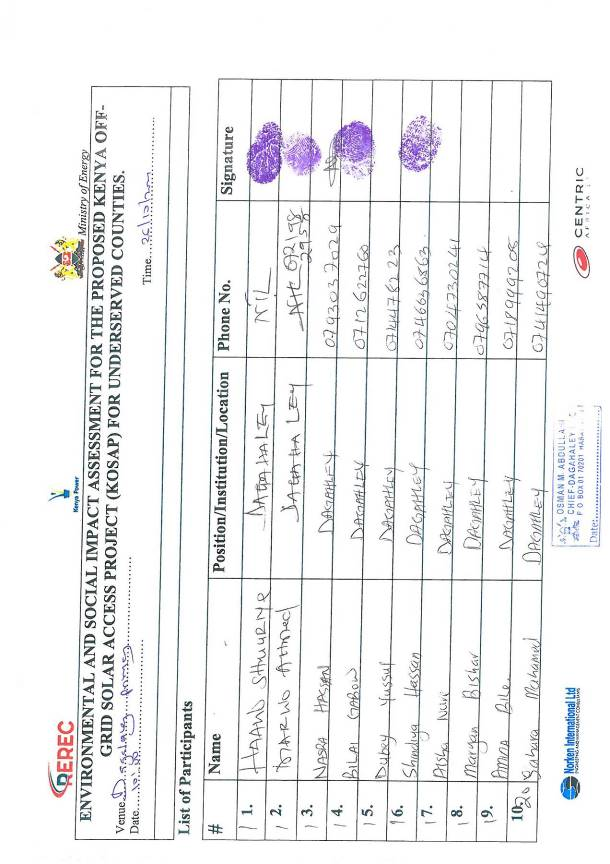 REREC
Kenya Power
Ministry of Energy
ENVIRONMENTAL AND SOCIAL IMPACT ASSESSMENT FOR THE PROPOSED KENYA OFF-
GRID SOLAR ACCESS PROJECT (KOSAP) FOR UNDERSERVED COUNTIES.
Venue
Date Time
List of Participants
# Name Position/Institution/Location Phone No. Signature
11. DAGAHALEY NIL
12. MARWO Ahmed DAGAHALEY
13. NASRA HASSAN DAGAHLEY 0793037029
14. BILAI GABOW DAGAHLEY 0712622760
15. Dubey Yussuf DAGAHLEY 0744478223
16. Shindiya Hassan DAGAHLEY 0746636863
17. Aisha Nuni DAGAHLEY 0704730241
18. Maryan Bishar DAGAHLEY 0796587714
19. Amina Bile DAGAHLEY 0718999208
20 Sahara Muhamud DAGAHLEY 0741490728
OSMAN M. ABDULLAHI
CHIEF-DAGAHALEY
P O BOX 01 70201
Date:
Norken International Ltd
CENTRIC
AFRICA